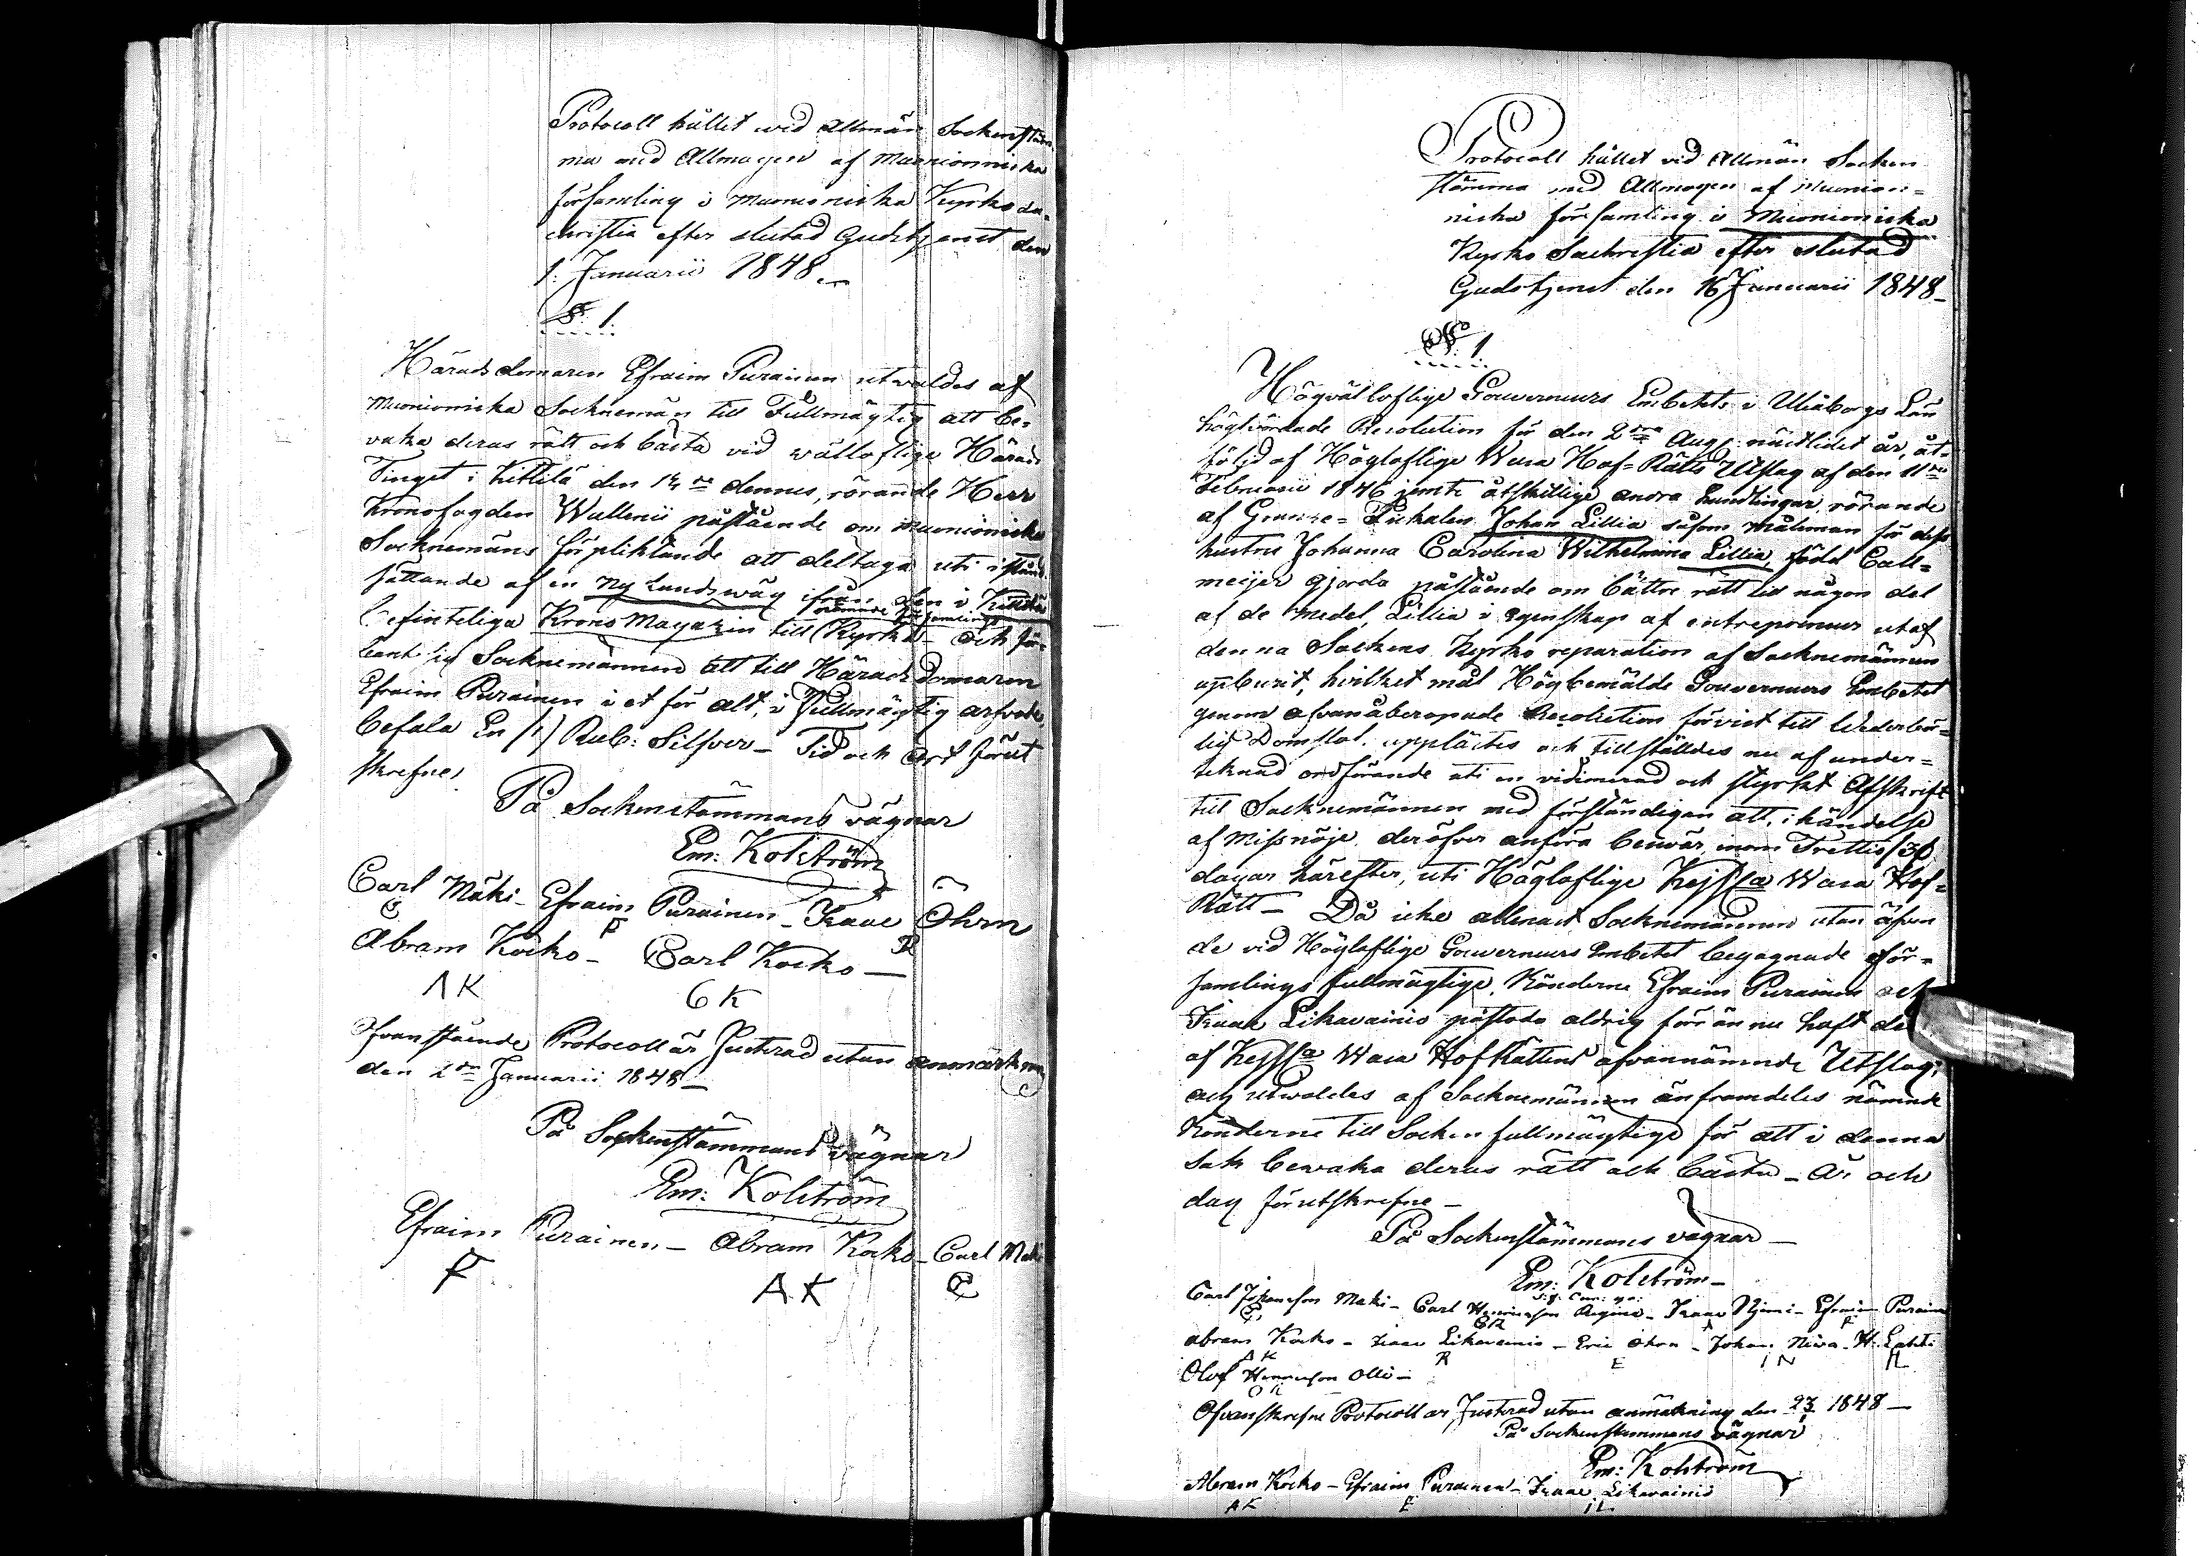 Protocoll hållet wid allmän Sockenstäm-
ma med Allmogen af Muonionniska
församling i Muonioniska Kyrko sa-
christia efter slutad Gudstjenst den
1. Januarii 1848.
§ 1.
Häradsdomaren Efraim Purainen utwaldes af
Muonioniska Socknemän till Fullmägtig att be-
vaka deras rätt och bästa vid wälloflige Härads
Tinget i Kittilä den 14de dennes, rörande Herr
Kronofogden Wallenii påstående om Muonioniska
Socknemäns förpliktande att deltaga uti istånd-
sättande af en ny Landswäg ifrån den i Kittilä
befinteliga Krono Magazin till Kyrka - och för-
bant sig Socknemännen att till Härads Domaren
Efraim Purainen i et för alt, i Fullmägtig arfvode,
befala En /1/ Rub: Silfver - Tid och Ort förut
skrefne.
På Sockenstämmans vägnar
Em: Kolström
Carl Mäki - Efraim Purainen - Isaac Öhrn
Abram Kocko - Carl Kocko -
AK CK
Ofvanstående Protocoll är Justerad utan anmärkn
den 2dra Januarii 1848 -
På Sockenstämmans vägnar
Em: Kolström
Efraim Purainen - Abram Kocko - Carl Mäki
AK C
Protocoll hållet vid Allmän Socken
stämma med Allmogen af Muonion-
niska församling i Muonioniska
Kyrko Sachristia efter slutad
Gudstjenst den 16 Januarii 1848 -
§ 1
Högvälloflige Gouverneurs Embetets i Uleåborgs Län
högtvördade Resolution för den 2dra Aug: nästlidet år, åt-
följd af Högloflige Wasa Hof-Rätts Utslag af den 11te
Februarii 1846 jemte åtskillige andra handlingar, rörande
af Gränse-Fiskalen Johan Lillia såsom målsman för dess
hustru Johanna Carolina Wilhelmina Lillia, född Call-
meijer gjorda påstående om bättre rätt till någon del
af de medel, Lillia i egenskap af entrepreneur utaf
denna Sockens Kyrko reparation af Socknemännen
uppburit, hvilket mål Högbemälde Gouverneurs Embetet
genom ofvanåberopade Resolution förvist till Wederbör-
lig Domstol, upplästes och tillställdes nu af under-
teknad ordförande uti en vidimerad och styrkt Afskrift
till Socknemännen med förständigan att, i händelse
af missnöje deröfver anföra besvär inom Trettio /30/
dagar härefter, uti Högloflige Kejsla Wasa Hof-
Rätt - Då icke allenast Socknemännen utan äfven
de vid Högloflige Gouverneurs Embetet begagnade för-
samlings fullmägtige, Bönderne Efraim Purainen och
Isaac Likavainio påstodo aldrig förr än nu haft del
af Kejsla Wasa HofRättens ofvannämnde Utslag;
och utwaldes af Socknemännen än framdeles nämnde
Bönderne till Socken fullmägtige för att i denna
sak bewaka deras rätt och bästa - År och
dag förutskrefne -
På Sockenstämmans vägnar -
Em: Kolström -
Carl Johansson Mäki - Carl Henricsson - Isaac Njimi - Efraim Purainen
Abram Kocko - Isaac Likavainio - Eric Öhrn - Johan Niva - H. Lahti
AK R E IN HL
Olof Henricsson Olli -
Ofvanskrefne Protocoll är Justerad utan anmärkning den 23 1848 -
På Sockenstämmans vägnar
Em: Kolström
Abram Kocko - Efraim Purainen - Isaac Likavainio
AK E IL